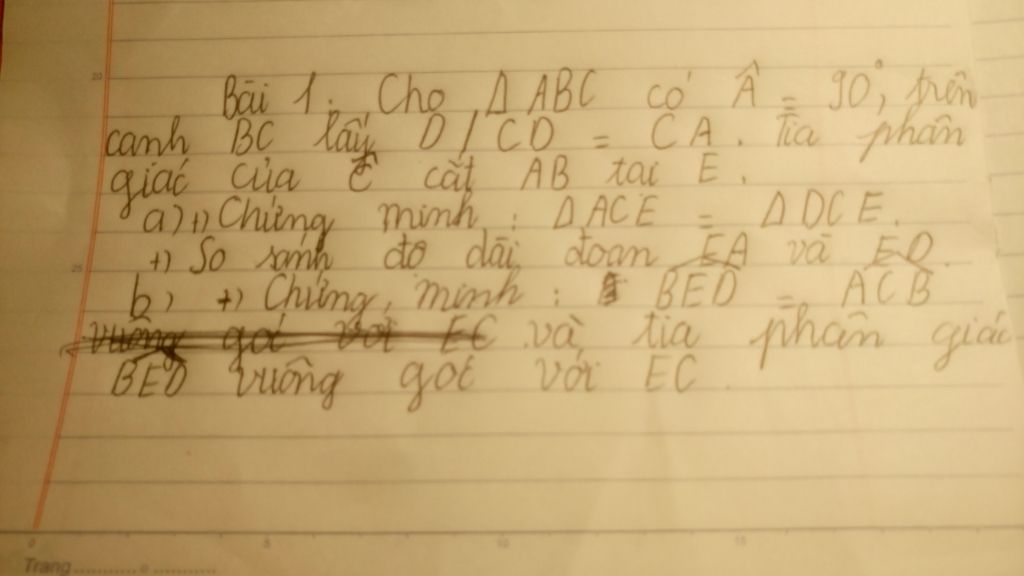 Bài 1: Cho Δ ABC có Â = 90°, trên
cạnh BC lấy D / CD = CA. Tia phân
giác của Ĉ cắt AB tại E.
a) +) Chứng minh : Δ ACE = Δ DCE.
+) So sánh độ dài đoạn EA và ED.
b) +) Chứng minh : BED = ACB
vuông góc với EC và tia phân giác
BED vuông góc với EC.
Trang ........... o ...........
20
25
0
5
10
15